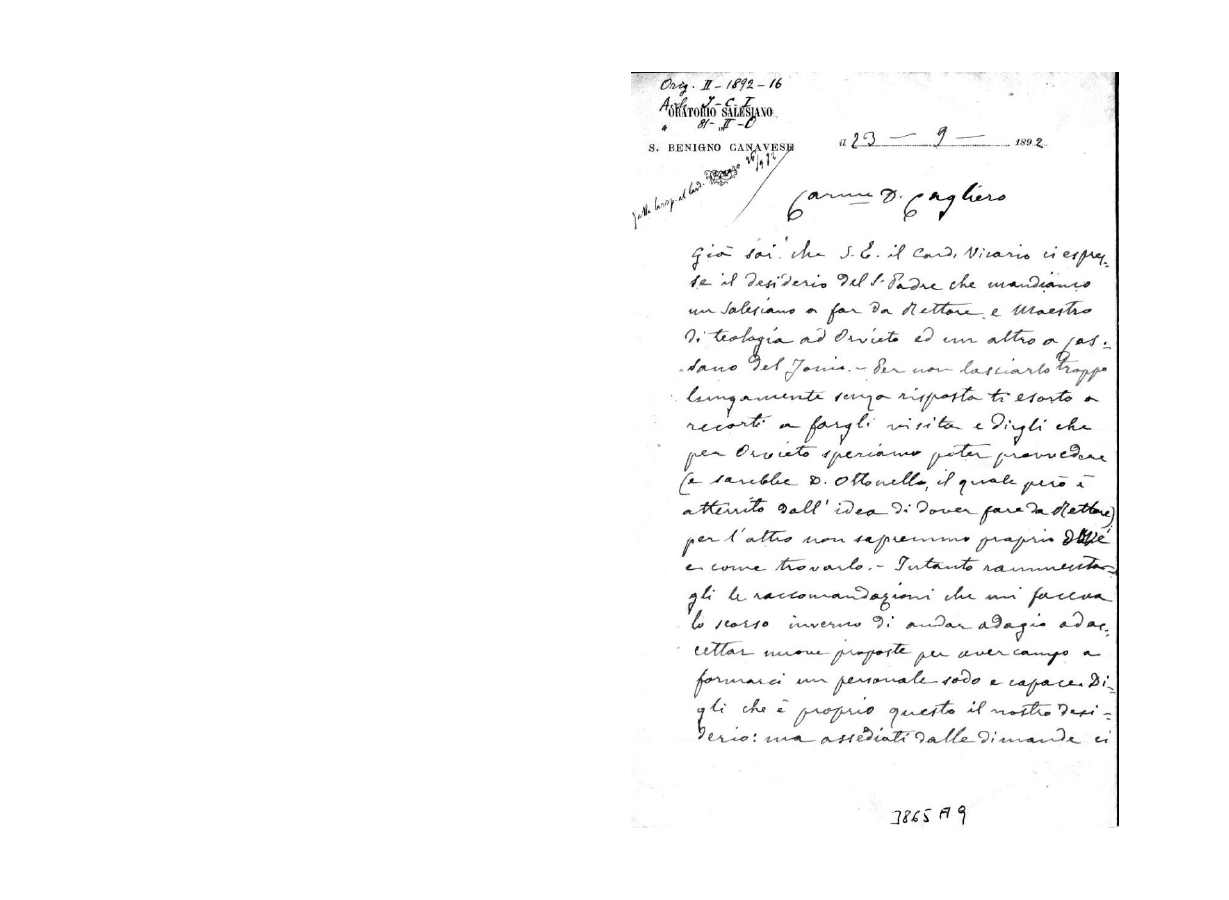 Orig. II - 1892 - 16
J - C - I
ORATORIO SALESIANO
81 - II - O
S. BENIGNO CANAVESE
il 23 — 9 — 1892
al Card.
Car.mo D. Cagliero
Già sai che S. E. il Card. Vicario ci espres-
se il desiderio del S. Padre che mandiamo
un Salesiano a far da Rettore e Maestro
di teologia ad Orvieto ed un altro a Cas-
sano del Jonio. - Per non lasciarlo troppo
lungamente senza risposta ti esorto a
recarti a fargli visita e dirgli che
per Orvieto speriamo poter provvedere
(e sarebbe D. Ottonello, il quale però è
atterrito dall'idea di dover fare da Rettore)
per l'altro non sapremmo proprio
e come trovarlo. - Intanto rammenta-
gli le raccomandazioni che mi faceva
lo scorso inverno di andar adagio ad ac-
cettar nuove proposte per aver campo a
formarci un personale sodo e capace. Di-
gli che è proprio questo il nostro desi-
derio: ma assediati dalle dimande ci
3865 A 9